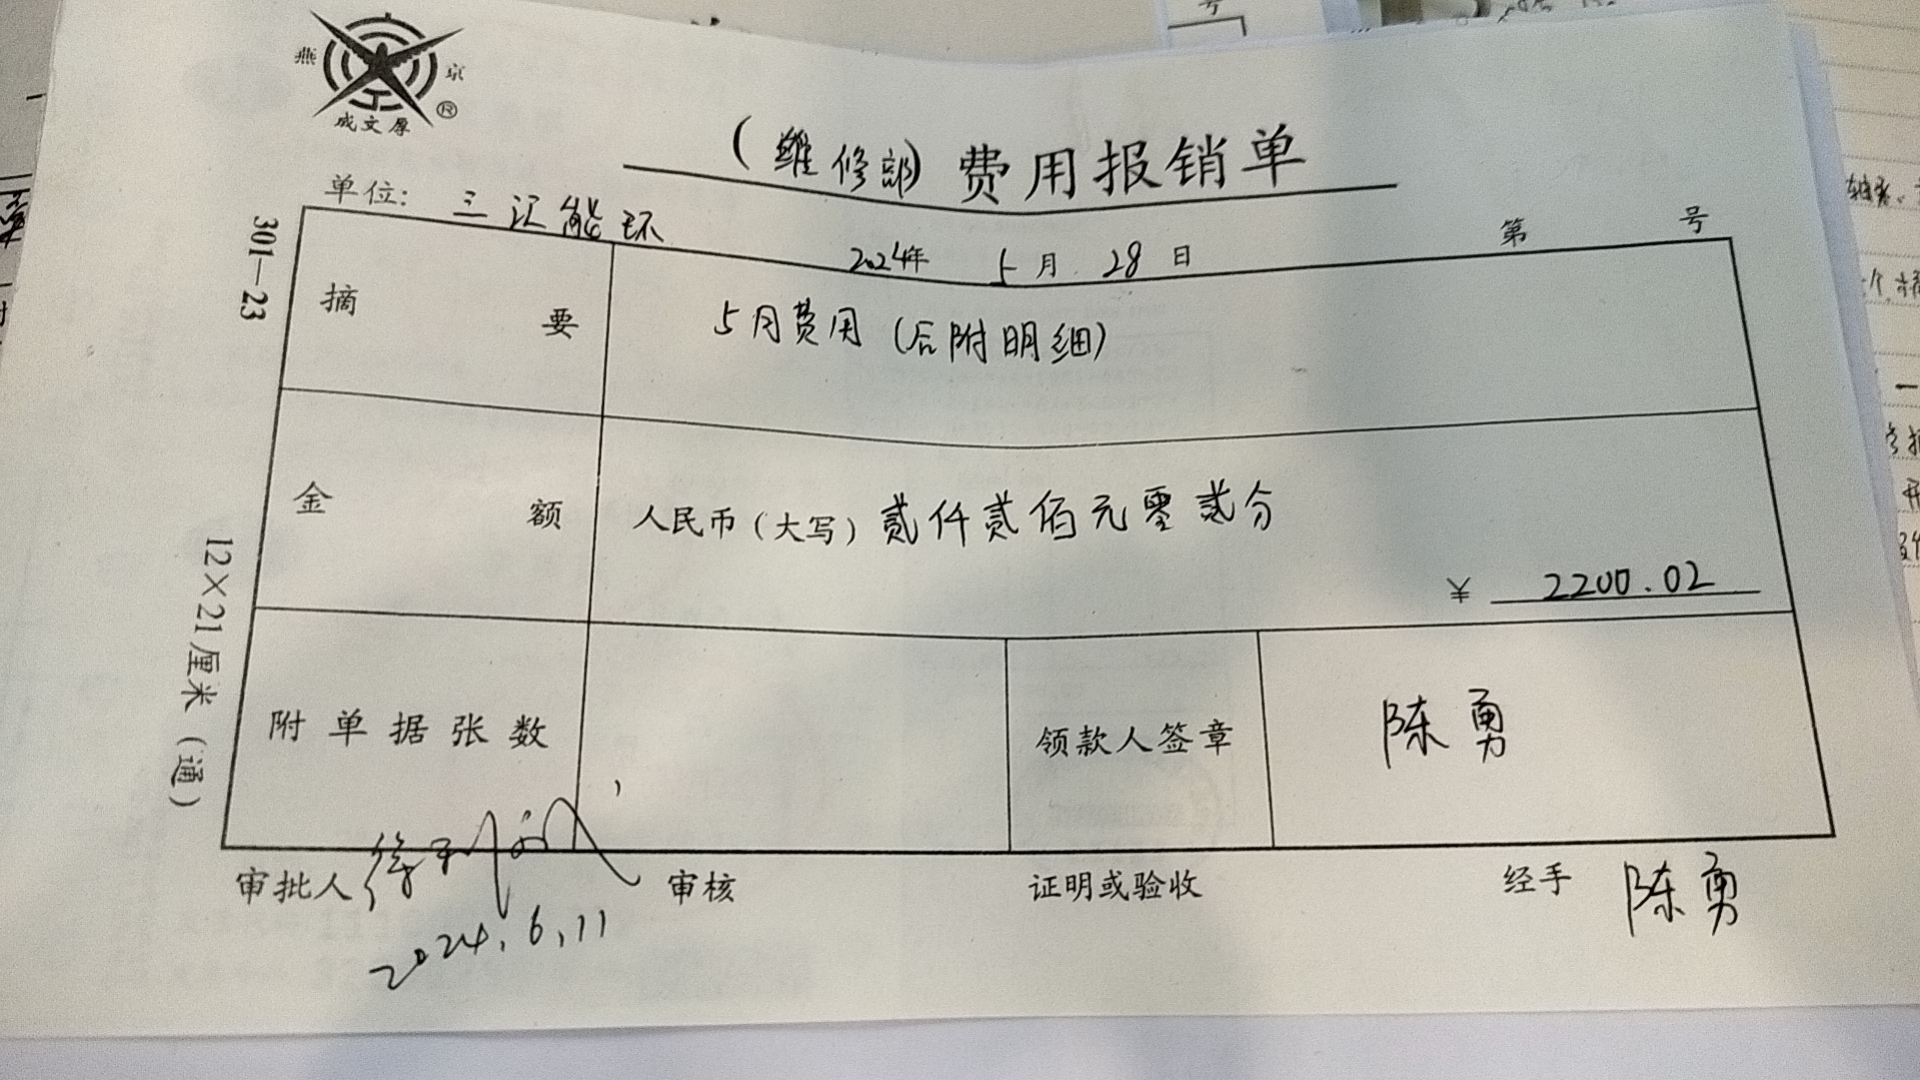 燕 京
®
成文厚
(维修部)费用报销单
单位: 三汇能环
第 号
2024年 5月 28日
301—23
12×21厘米(通)
摘要
5月费用(后附明细)
金额
人民币(大写)贰仟贰佰元零贰分
¥ 2200.02
附单据张数
领款人签章
陈勇
审批人
审核
证明或验收
经手 陈勇
2024.6.11